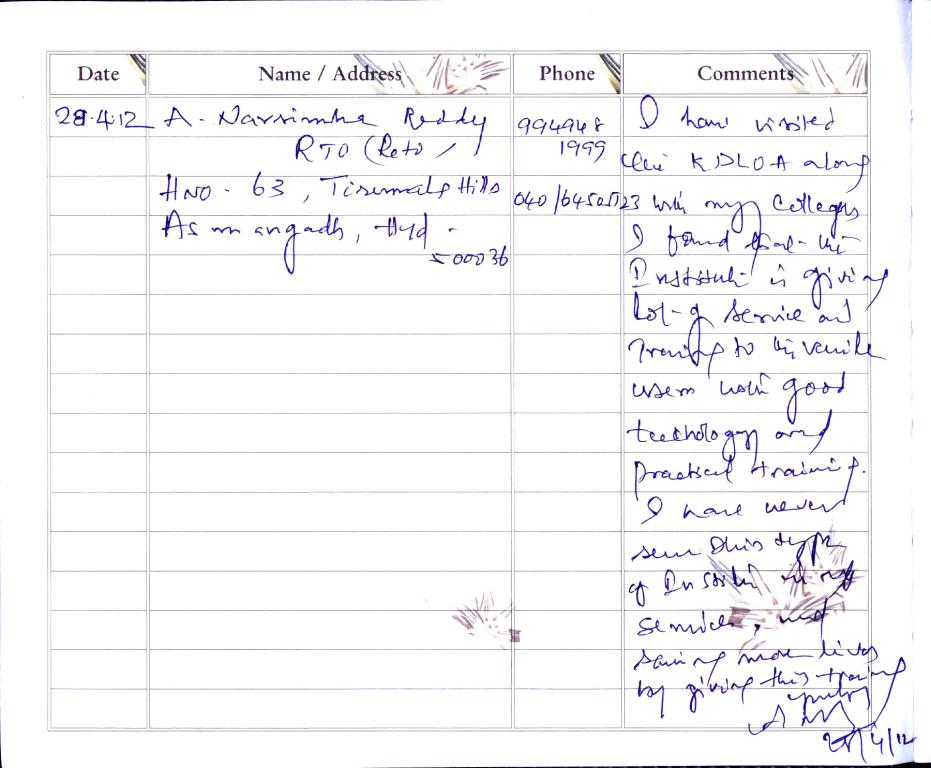 Date Name / Address Phone Comments
28.4.12 A. Narsimha Reddy
RTO (Retd)
HNO - 63, Tirumala Hills
Asmangadh, Hyd -
500036
994948
1999
040/64505123
I have visited
the KDLOA along
with my Collegs
I found that the
Institute is giving
Lot of Service and
Training to the vehicle
users with good
technology and
practical training.
I have never
seen this type
of Institute in my
Service, and
saving more lives
by giving this training
28/4/12